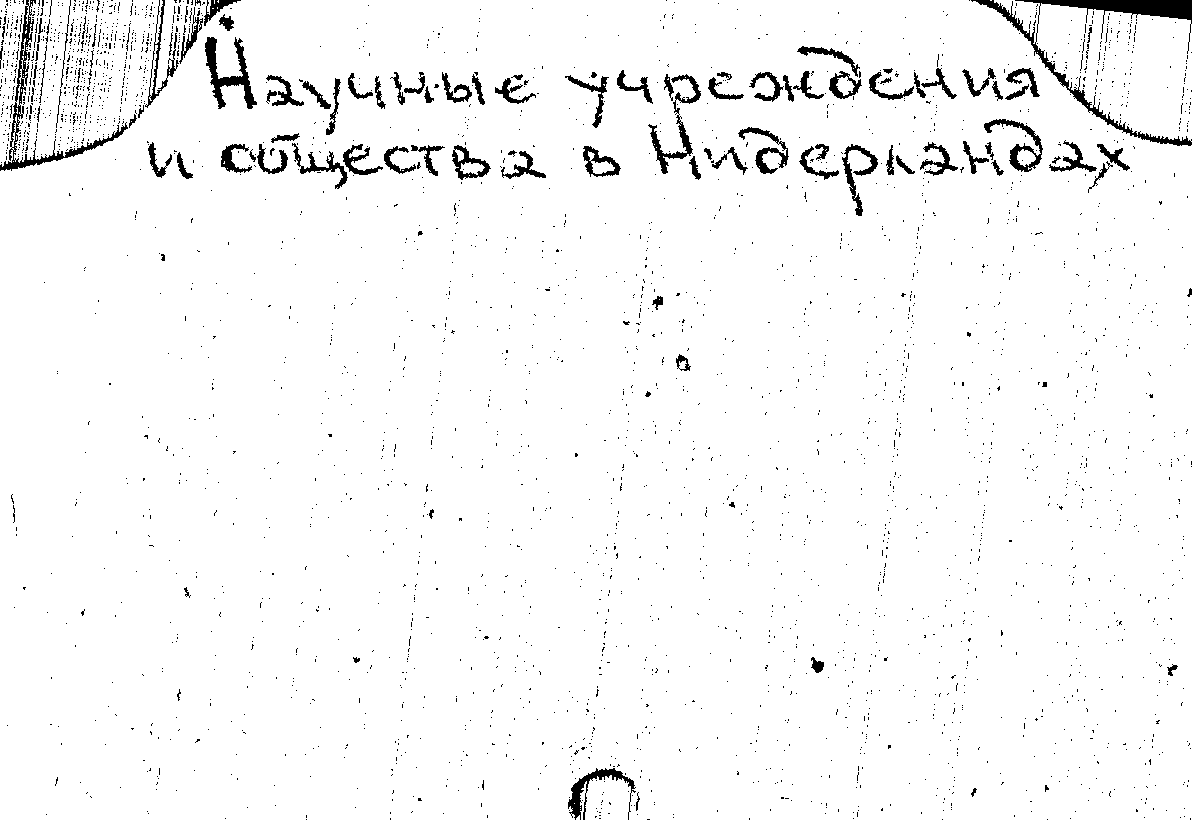 Научные учреждения
и общества в Нидерландах